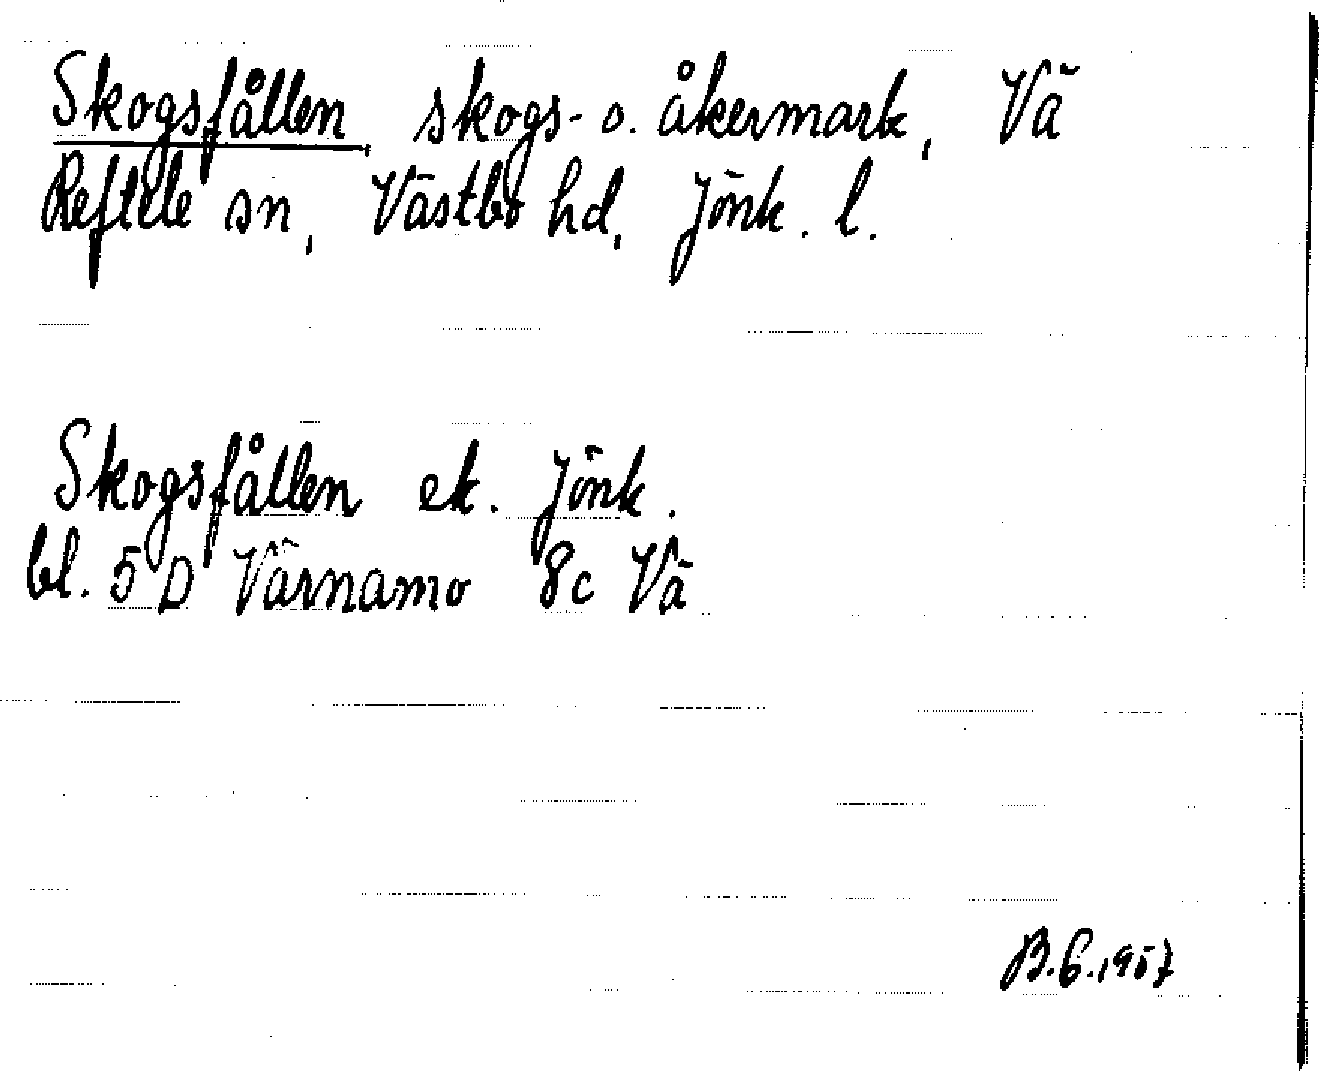 Skogsfållen, skogs- o. åkermark, Vä
Reftele sn, Västbo hd, Jönk. l.
Skogsfållen ek. Jönk.
bl. 5 D Värnamo 8c Vä
B.G.1957